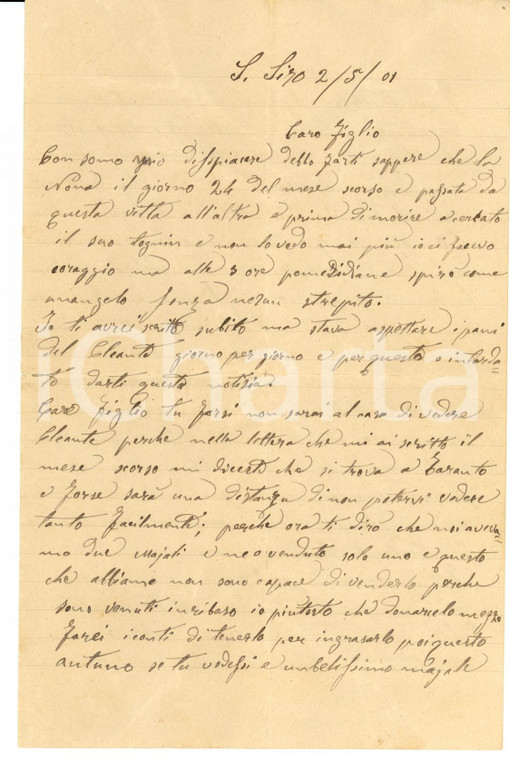 S. Siro 2/5/01
Caro Figlio
Con somo mio dispiacere debbo farti sappere che la
Nona il giorno 24 del mese scorso e passata da
questa vitta all'altra e prima di morire a cercato
il suo e non lo vedo mai più io ci facevo
coraggio ma alle 3 ore pomeridiane spirò come
unangelo senza nesun strepito.
Io ti avrei scritto subito ma stava aspettare i pani
del Cleante giorno per giorno e per questo o intarda=
to darti questa notisia.
Caro Figlio tu forsi non sarai al caso di vedere
Cleante perche nella lettera che mi ai scritto il
mese scorso mi dicesti che si trova a Taranto
e forse sarà una distanza di non potervi vedere
tanto facilmente; perchè ora ti dirò che noi aveva=
mo due majali e ne o venduto solo uno e questo
che abbiamo non sono capace di venderlo perche
sono venuti in ribaso io piutosto che donarcelo mezzo
farei i conti di tenerlo per ingrasarlo poi questo
autuno se tu vedessi e unbelissimo majale
iCharta